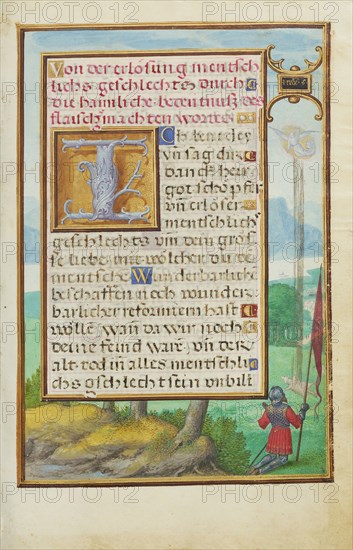 Von der erlösung mentsch
lichs geschlechts durch
die haimliche bedeutnusz des
flaischgmachten wortes
Ich benedey
vn̄ sag dir
danck herr
got schöpffer
vn̄ erlöser
mentschlichs
geschlechts vm̄ dein gros
se liebe mit wölcher du die
mentsche Wunderbarlich
beschaffen noch wunder
barlicher reformiern hast
wölle wan̄ da wir noch
deine feind ware vn̄ der
alt tod in alles mentschli
chs geschlecht sein vnbilt